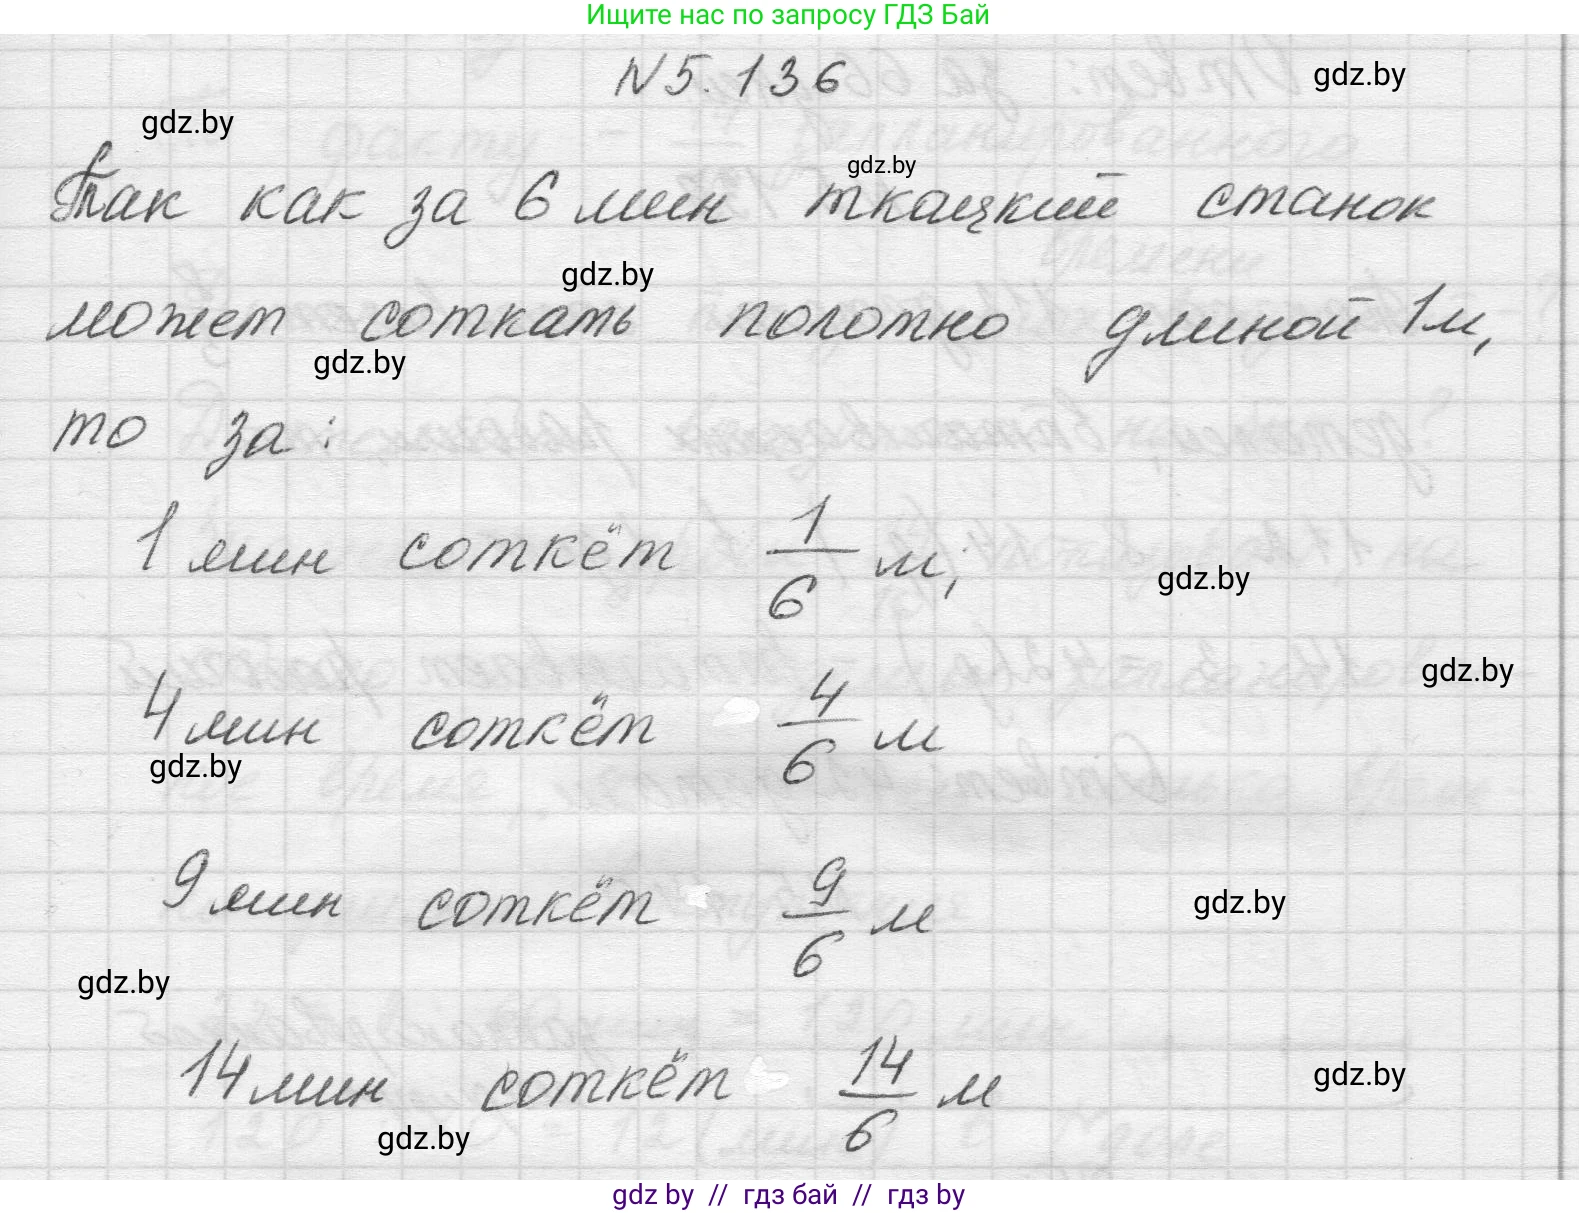 Ищите нас по запросу ГДЗ Бай
N 5.136
gdz.by
gdz.by
gdz.by
Так как за 6 мин ткацкий станок
gdz.by
может соткать полотно длиной 1м,
gdz.by
то за:
1 мин соткёт 1/6 м;
gdz.by
gdz.by
4 мин соткёт 4/6 м
gdz.by
9 мин соткёт 9/6 м
gdz.by
gdz.by
14 мин соткёт 14/6 м
gdz.by
gdz.by
gdz by // гдз бай // гдз by